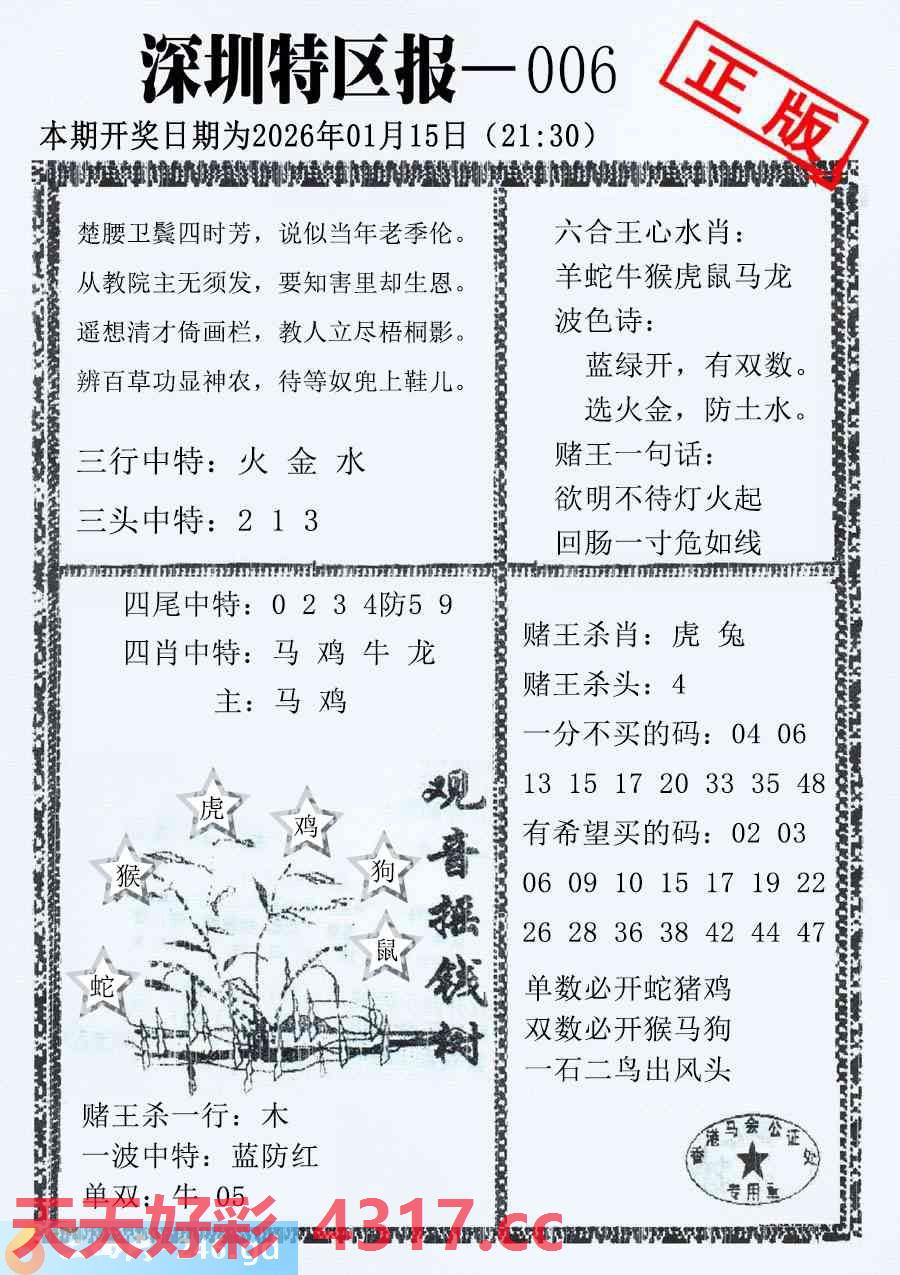 深圳特区报—006
正版
本期开奖日期为2026年01月15日（21:30）
楚腰卫鬓四时芳，说似当年老季伦。
从教院主无须发，要知害里却生恩。
遥想清才倚画栏，教人立尽梧桐影。
辨百草功显神农，待等奴兜上鞋儿。
三行中特：火 金 水
三头中特：2 1 3
六合王心水肖：
羊蛇牛猴虎鼠马龙
波色诗：
蓝绿开，有双数。
选火金，防土水。
赌王一句话：
欲明不待灯火起
回肠一寸危如线
四尾中特：0 2 3 4防5 9
四肖中特：马 鸡 牛 龙
主：马 鸡
观音摇钱树
虎
鸡
猴
狗
鼠
蛇
赌王杀一行：木
一波中特：蓝防红
单双：牛 05
赌王杀肖：虎 兔
赌王杀头：4
一分不买的码：04 06
13 15 17 20 33 35 48
有希望买的码：02 03
06 09 10 15 17 19 22
26 28 36 38 42 44 47
单数必开蛇猪鸡
双数必开猴马狗
一石二鸟出风头
香港马会公证处
专用章
天天好彩 4317.cc